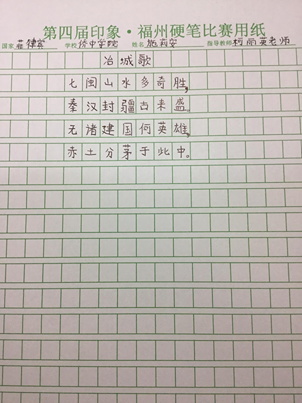 第四届印象·福州硬笔比赛用纸
国家 菲律宾 学校 侨中学院 姓名 施莉安 指导教师 柯丽英老师
冶城歌
七闽山水多奇胜,
秦汉封疆古来盛。
无诸建国何英雄,
赤土分茅于此中。